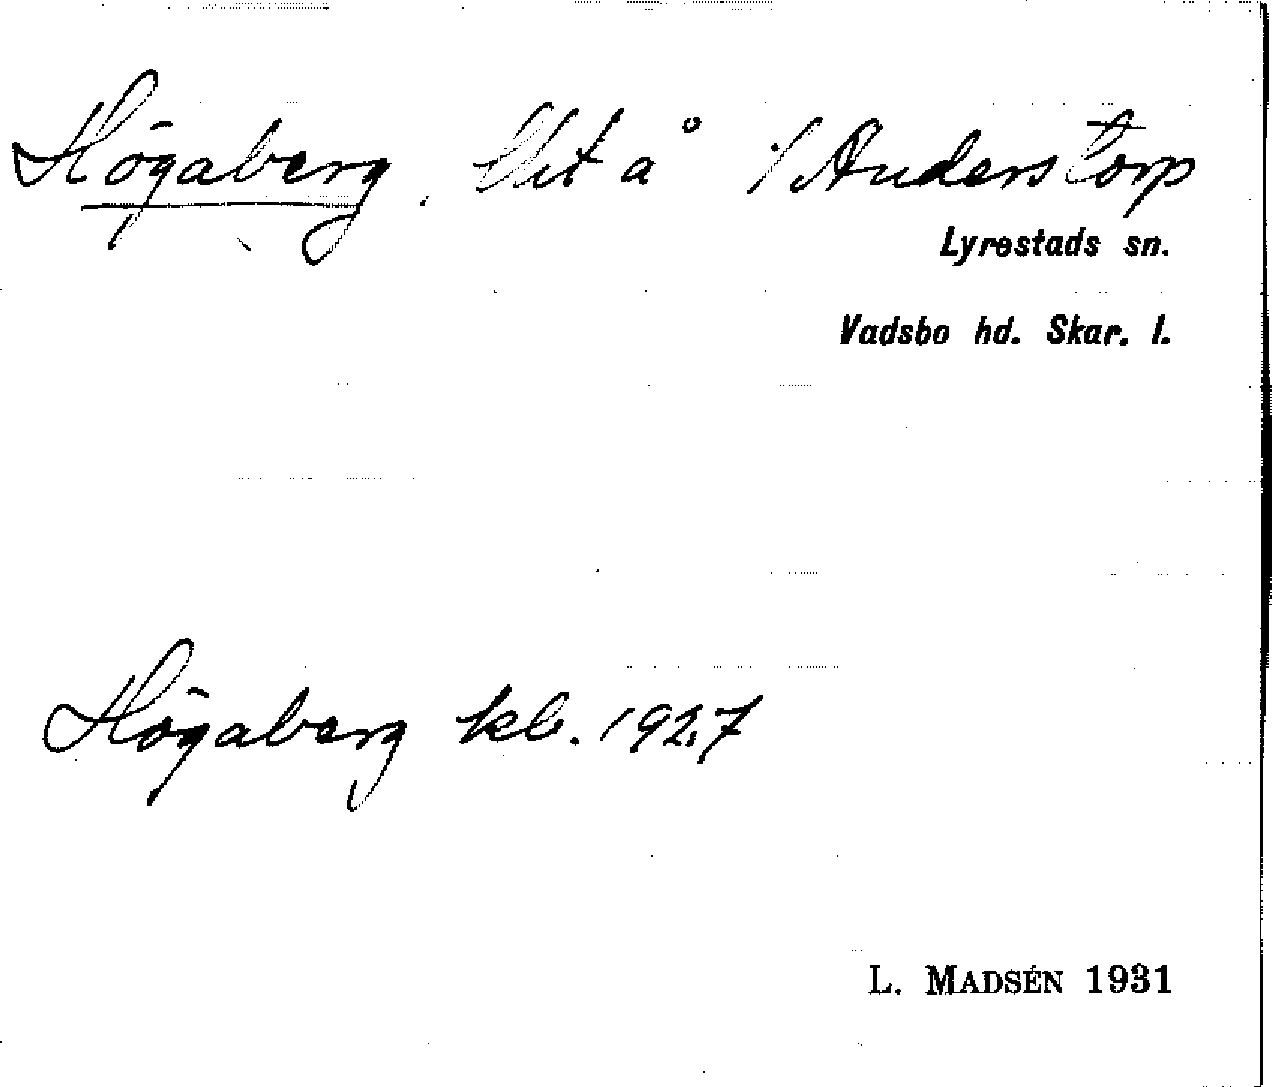 Högaberg, lht å 1/1 Anderstorp
Lyrestads sn.
Vadsbo hd. Skar. l.
Högaberg kb. 1927
L. MADSÉN 1931